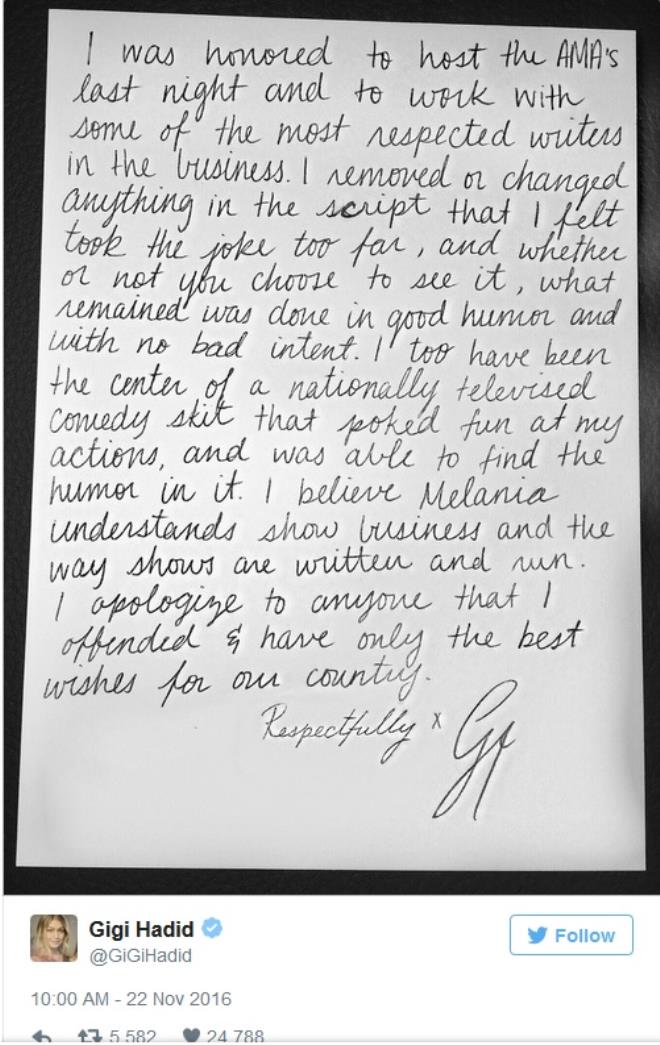 I was honored to host the AMA's
last night and to work with
some of the most respected writers
in the business. I removed or changed
anything in the script that I felt
took the joke too far, and whether
or not you choose to see it, what
remained was done in good humor and
with no bad intent. I too have been
the center of a nationally televised
comedy skit that poked fun at my
actions, and was able to find the
humor in it. I believe Melania
understands show business and the
way shows are written and run.
I apologize to anyone that I
offended & have only the best
wishes for our country.
Respectfully x
Gigi Hadid
Follow
@GiGiHadid
10:00 AM - 22 Nov 2016
5,582 24,788